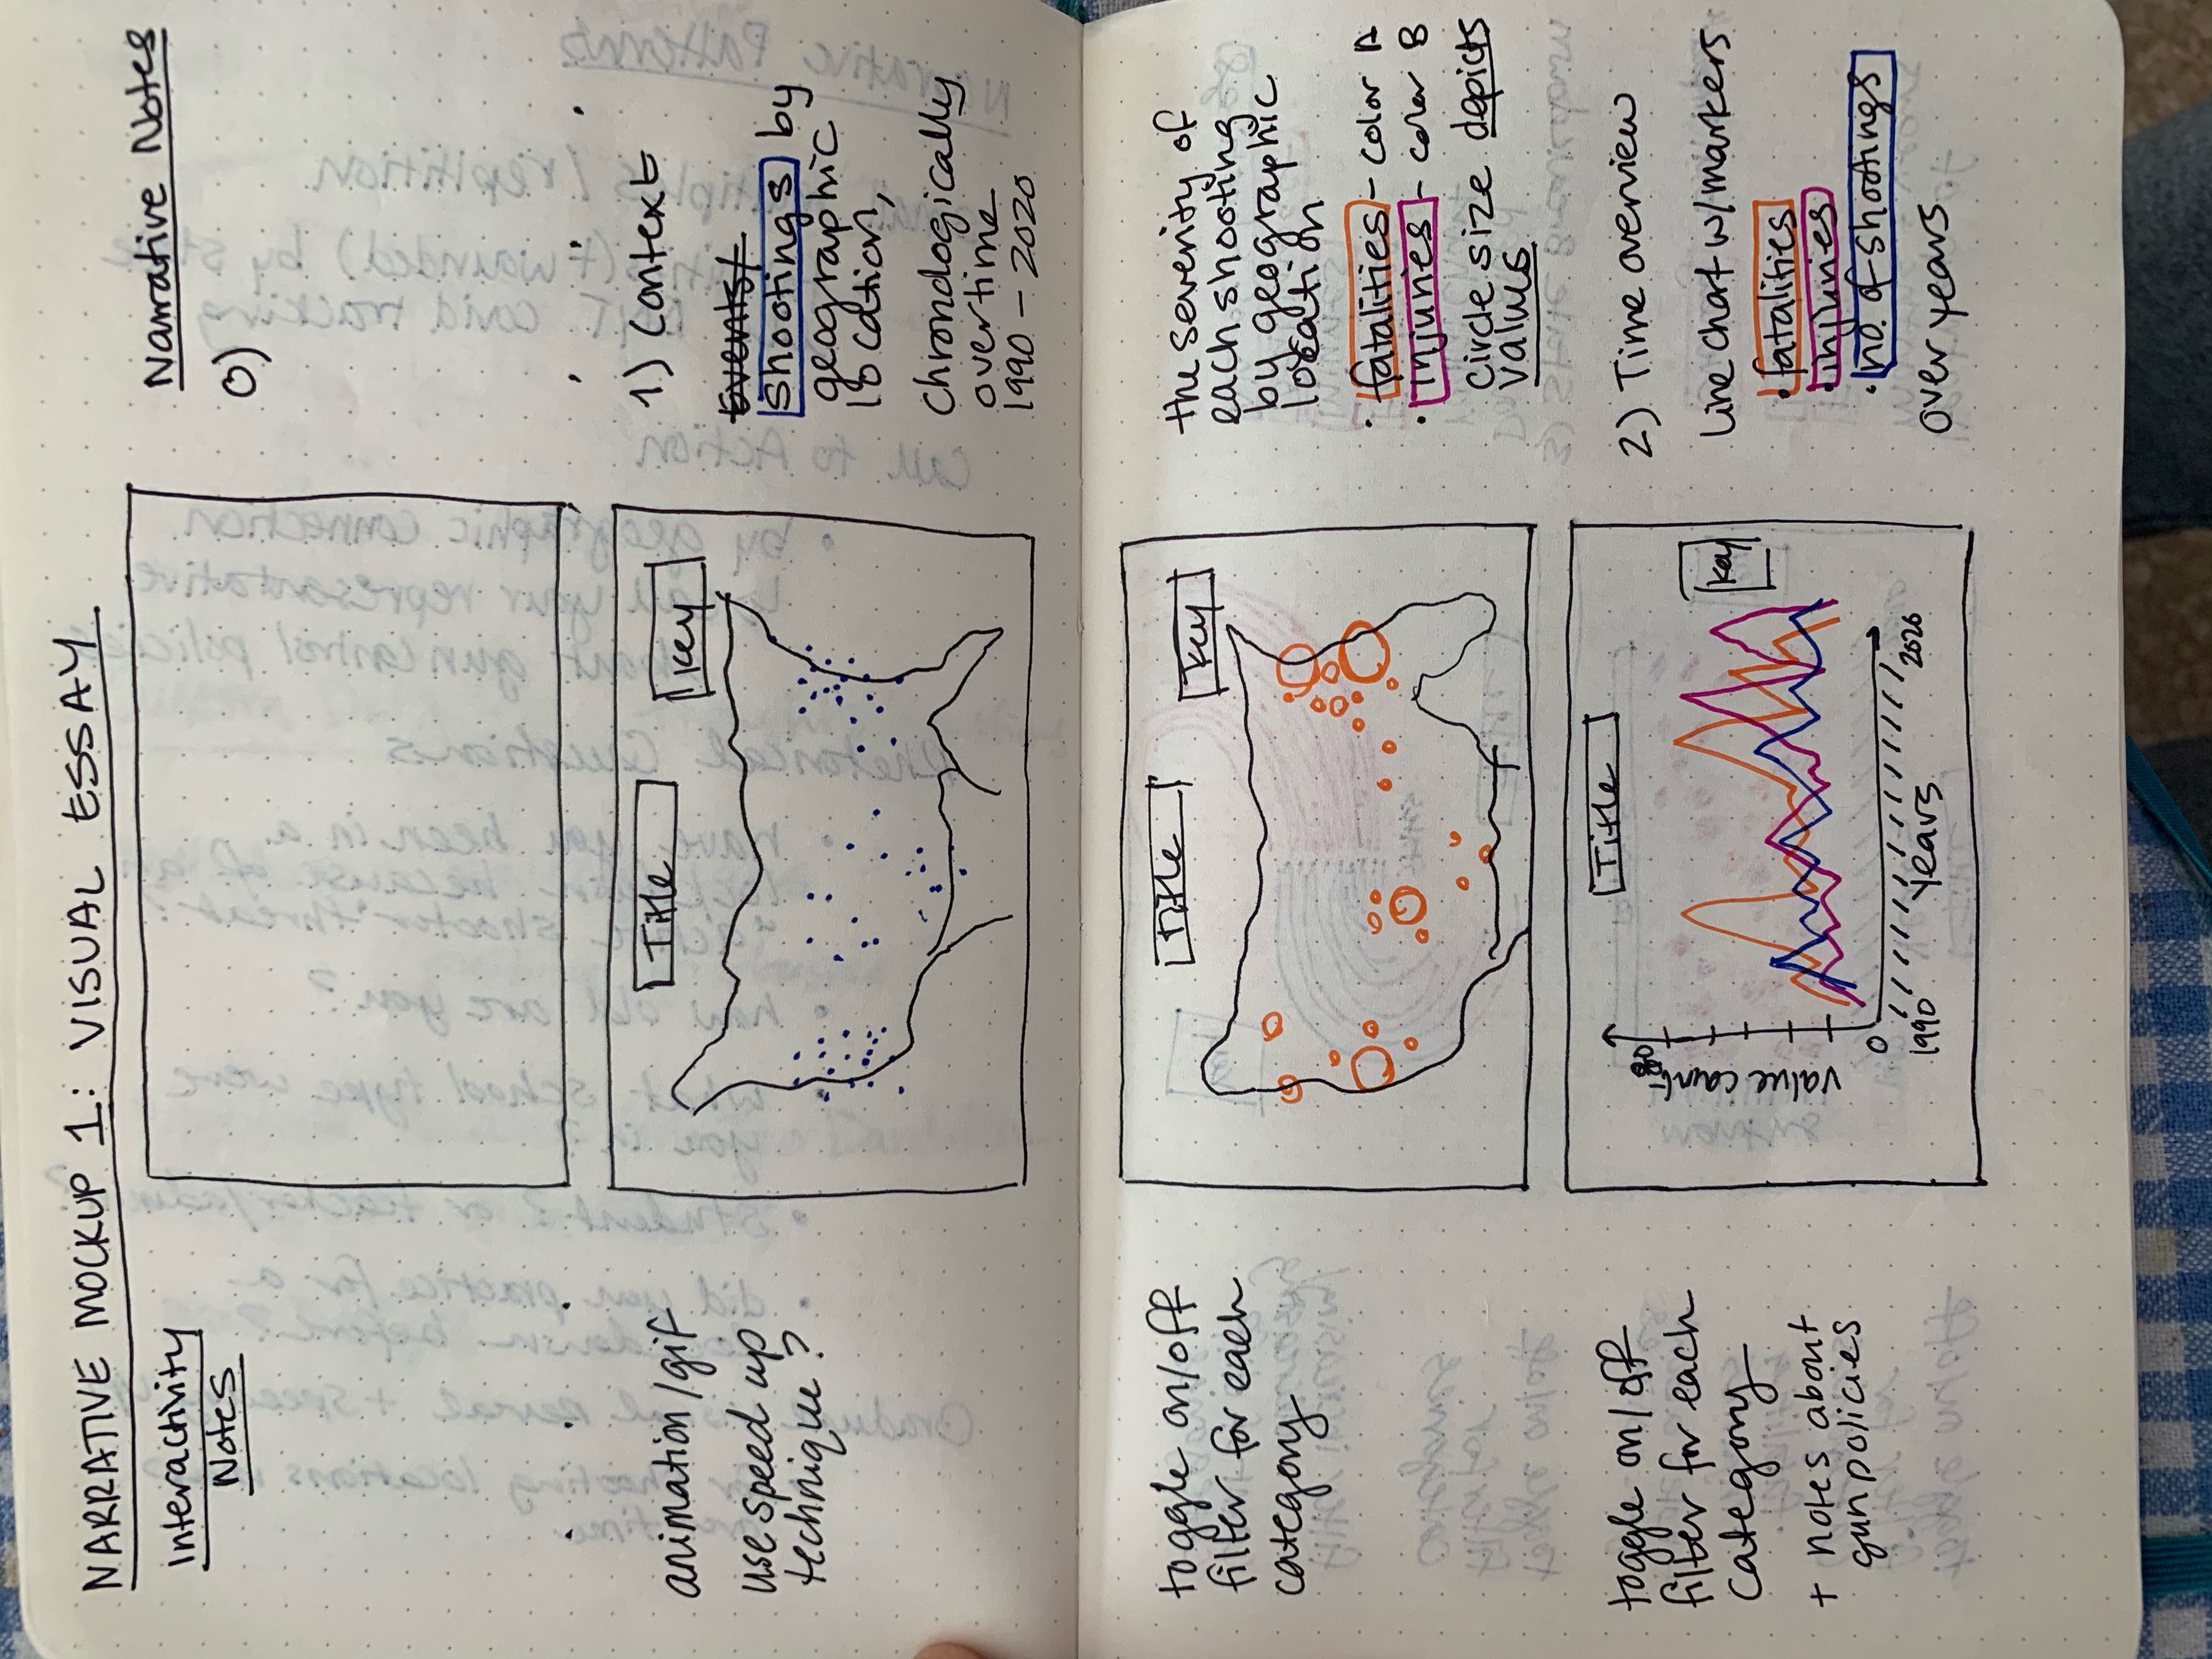 NARRATIVE MOCKUP 1: VISUAL ESSAY
Interactivity
Notes
Narrative Notes
0)
animation/gif
use speed up
technique?
Title
Key
1) Context
Events/
Shootings by
geographic
location,
Chronologically
overtime
1990 - 2020
toggle on/off
filter for each
category
Title
Key
the severity of
each shooting
by geographic
location
• fatalities - color A
• injuries - color B
circle size depicts
values
toggle on/off
filter for each
category
+ notes about
gun policies
Title
value count
0
1990
Years
2020
Key
2) Time overview
Line chart w/markers
• fatalities
• injuries
• no. of shootings
over years